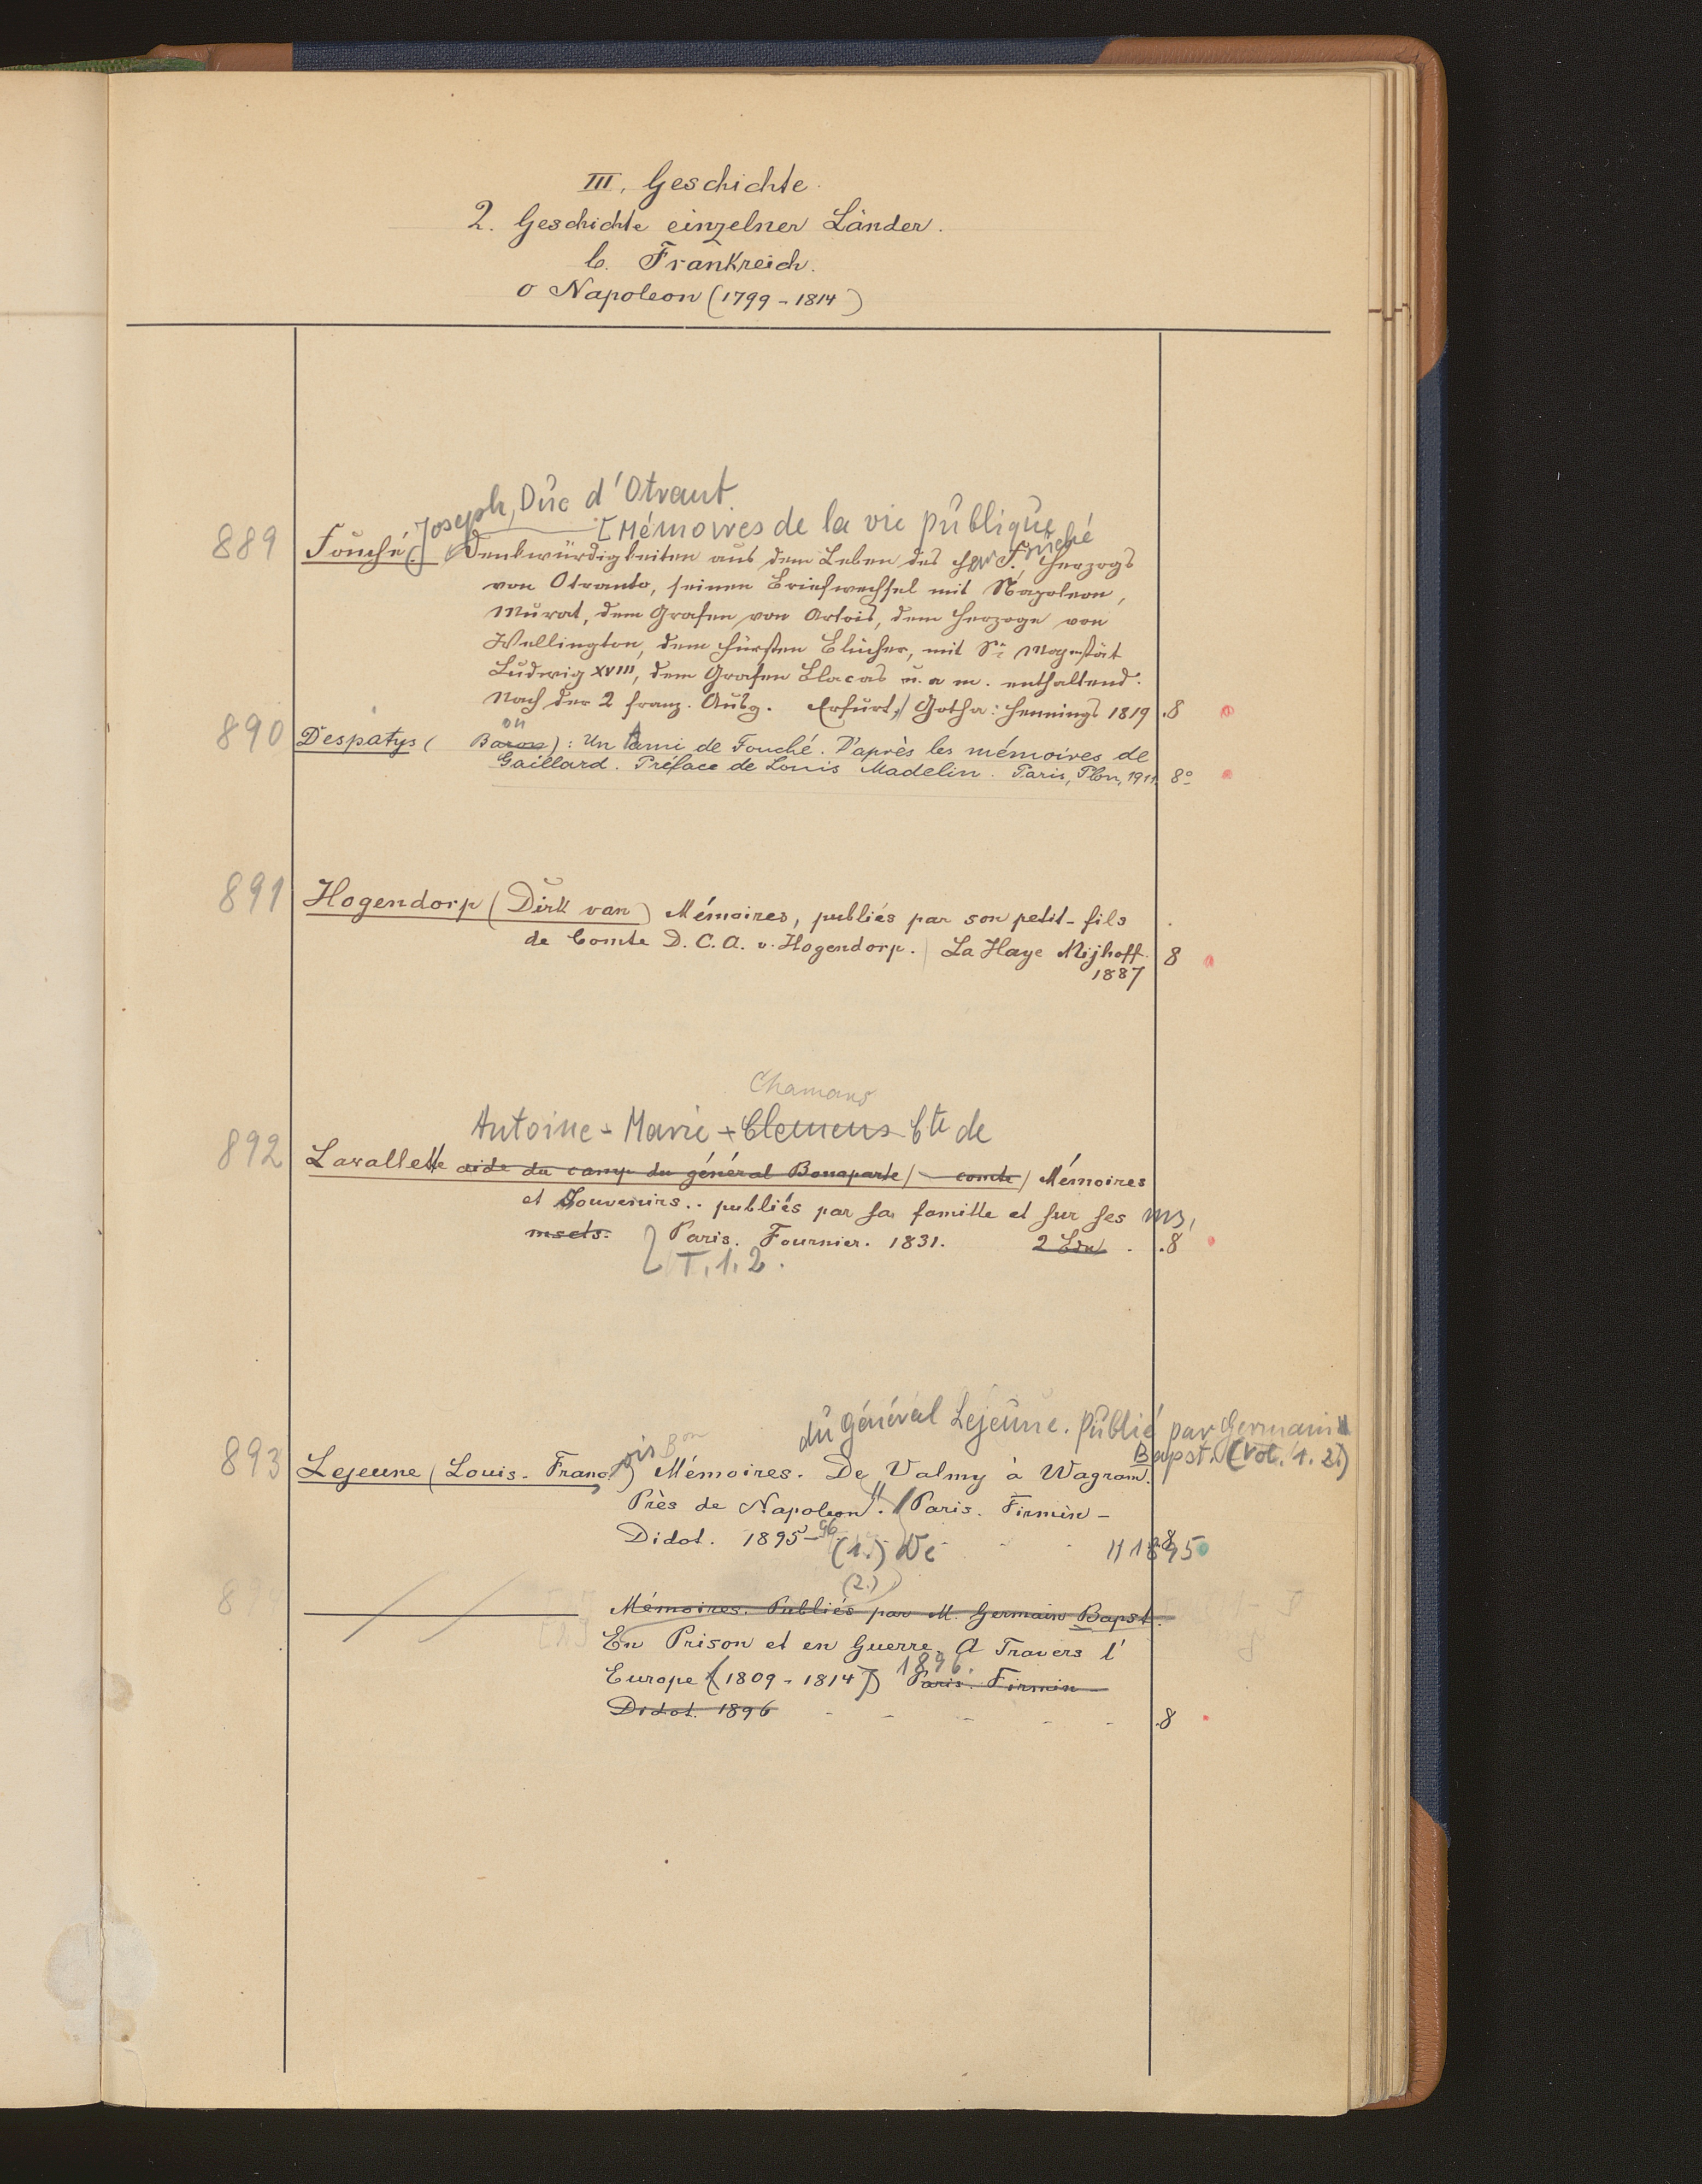 III. Geschichte.
2. Geschichte einzelner Länder.
b. Frankreich.
o Napoleon (1799-1814)
Joseph, Duc d'Otrant.
[Mémoires de la vie publique
889 Fouché (.) Denkwürdigkeiten aus dem Leben des Herr F. Fouché Herzogs
von Otranto, seinen Briefwechsel mit Napoleon,
Murat, dem Grafen von Artois, dem Herzoge von
Wellington, dem Fürsten Blücher, mit Sr Majestät
Ludwig XVIII, dem Grafen Blacas u. a m. enthaltend.
Nach der 2 franz. Ausg. Erfurt, Gotha: Hennings 1819 .8
on
890 Despatys ( Baron): Un Ami de Fouché. D'après les mémoires de
Gaillard. Préface de Louis Madelin. Paris, Plon, 1911. 8o
891 Hogendorp (Dirk van) Mémoires, publiés par son petit-fils
de Comte D. C. A. v. Hogendorp. La Haye Nijhoff. 8
1887
Chamans
Antoine-Marie-Clemens Cte de
892 Lavallette aide du camp du général Bonaparte/ comte) Mémoires
et Souvenirs.. publiés par sa famille et sur ses ms,
mscts. Paris. Fournier. 1831. 2 Bde .8
T. 1. 2.
du général Lejeune. Publié par Germain
Bapst. (Vol. 1. 2.)
893 Lejeune (Louis-François) Bon Mémoires. De Valmy à Wagram.
Près de Napoleon". Paris. Firmin-
Didot. 1895-96 - - -
(1.) De 1895 8
(2.)
Mémoires. Publiés par M. Germain Bapst.
En Prison et en Guerre. A Travers l'
Europe (1809-1814) 1896. Paris. Firmin-
Didot. 1896 - - - - - .8